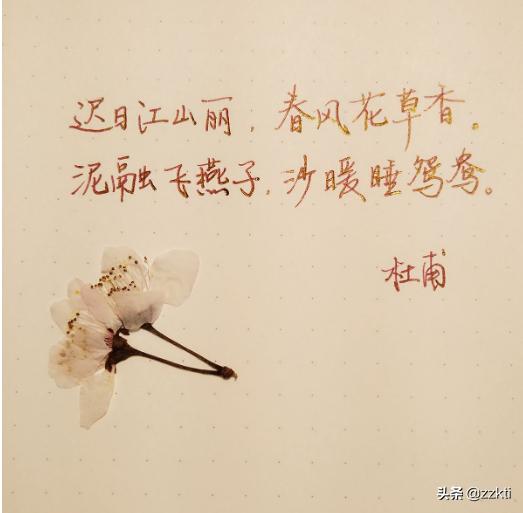 迟日江山丽，春风花草香。
泥融飞燕子，沙暖睡鸳鸯。
杜甫
头条 @zzkti